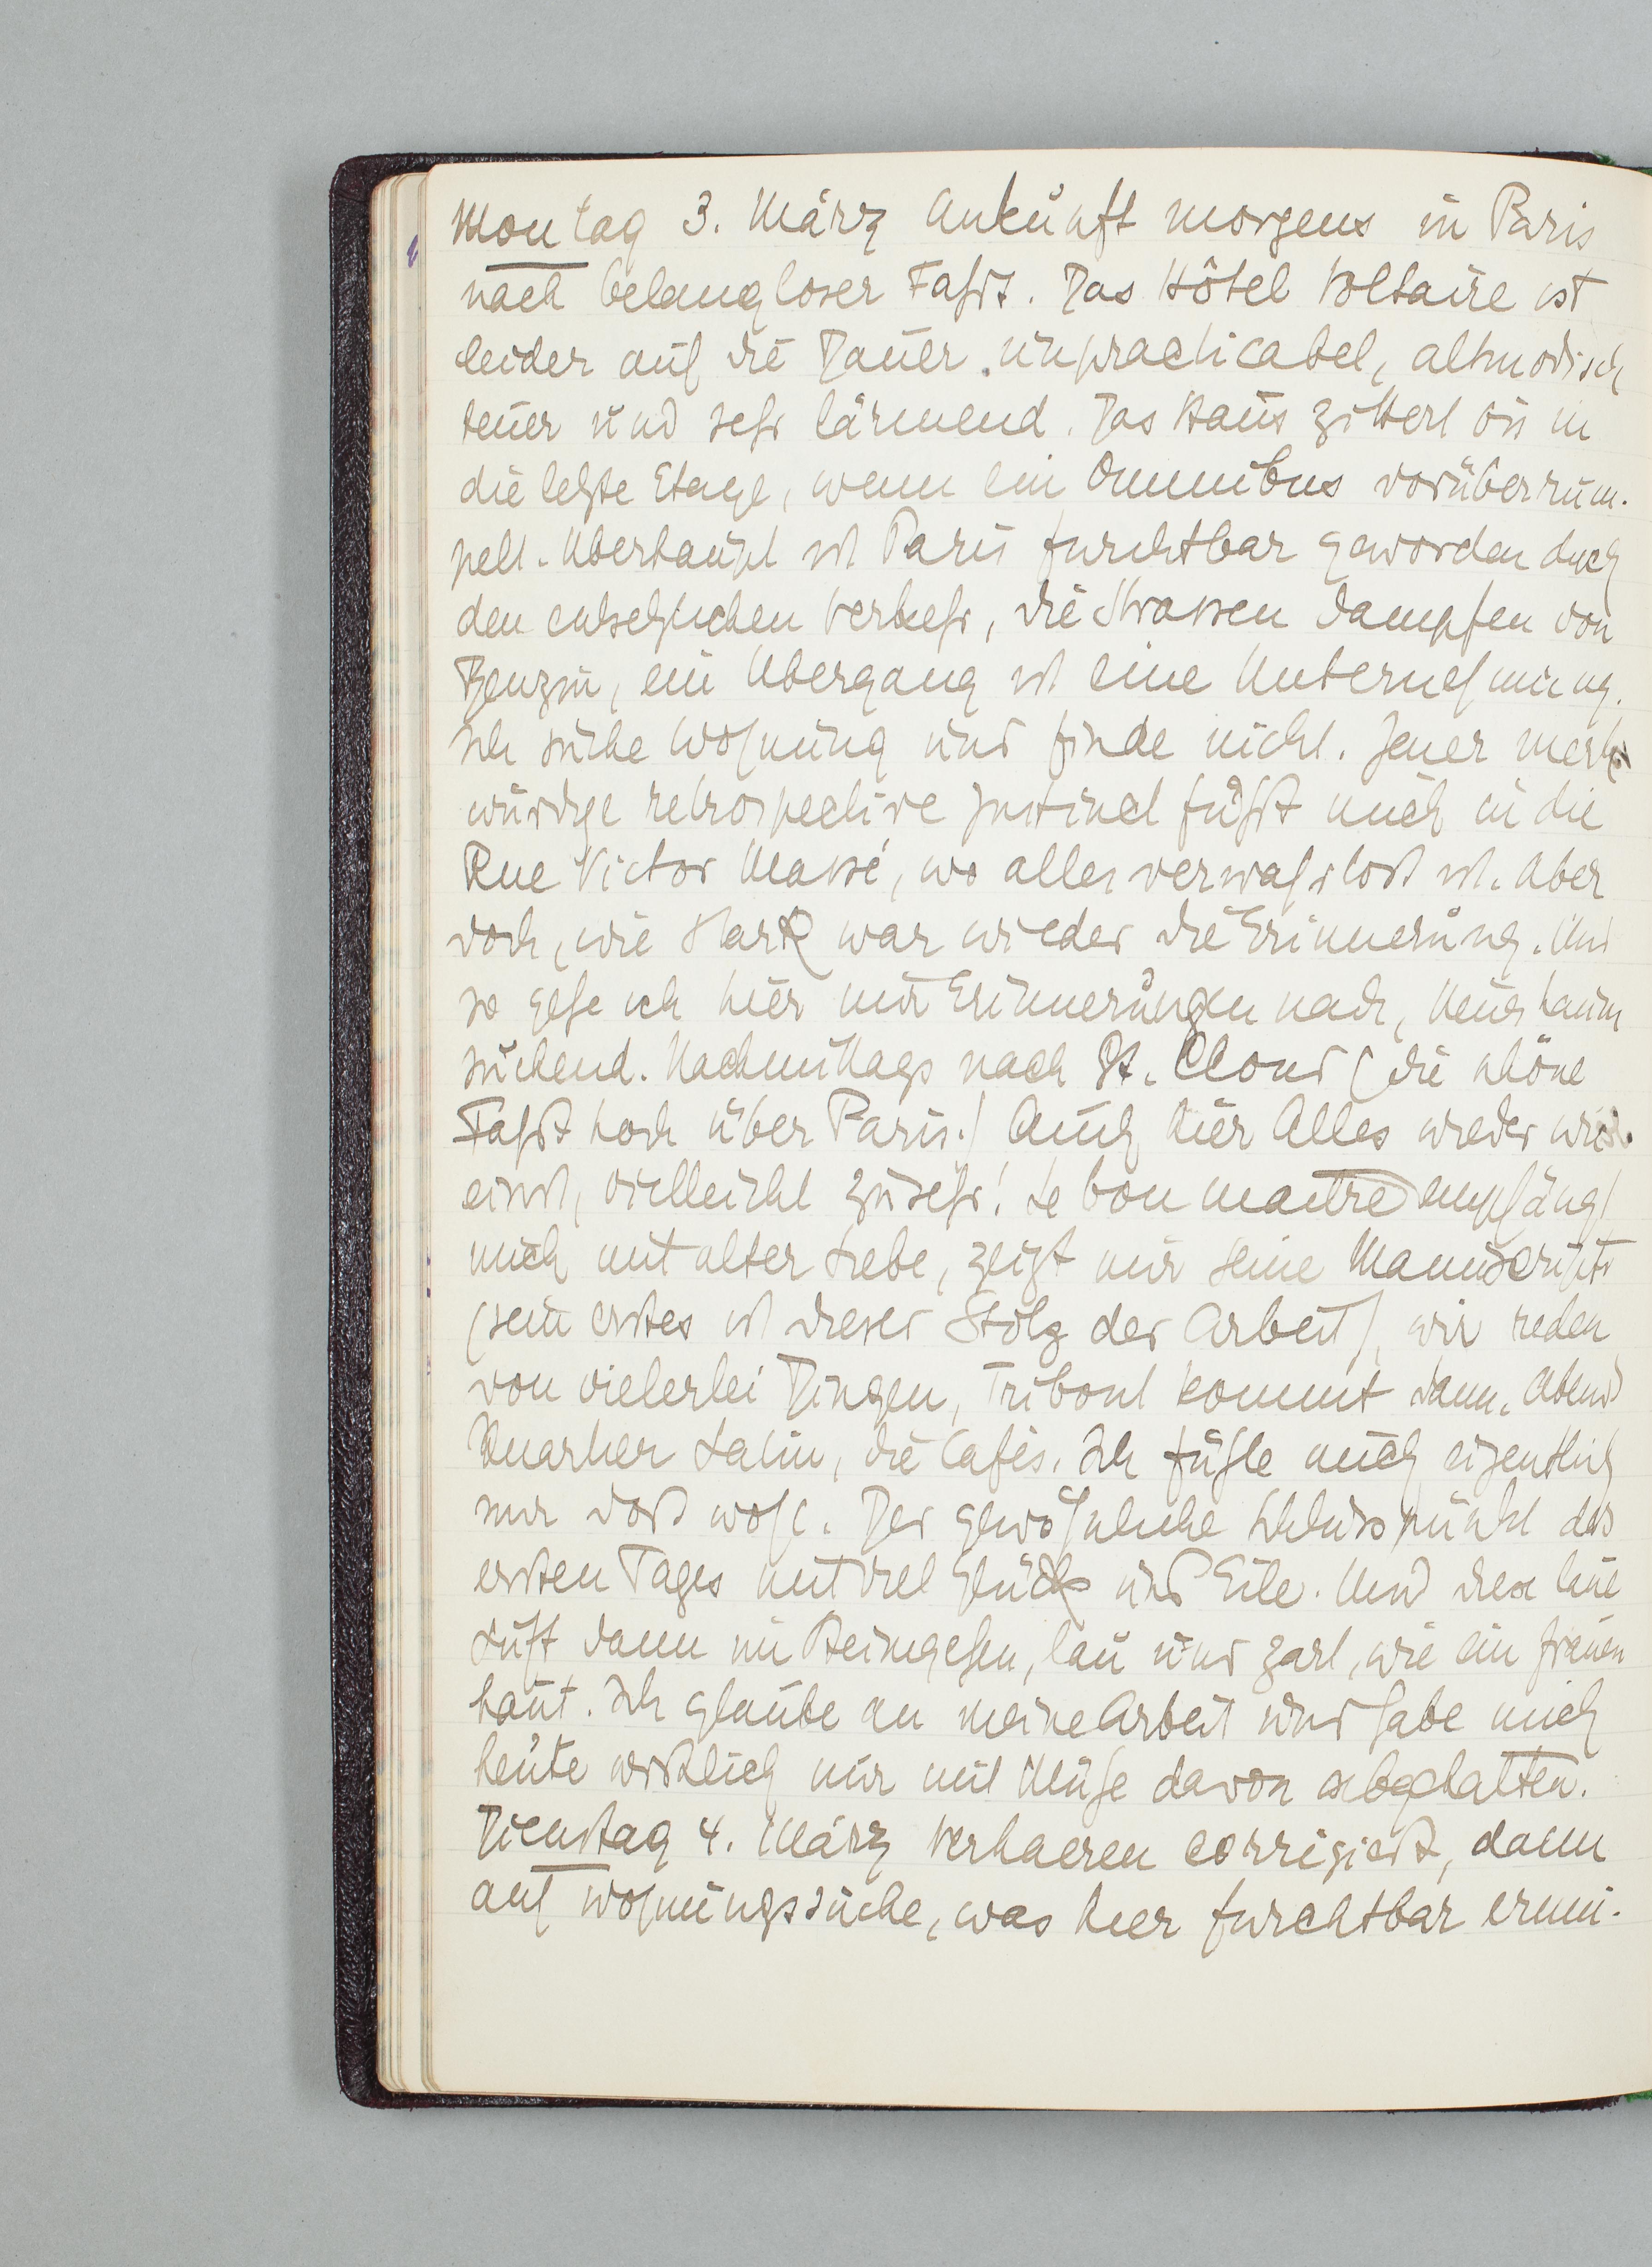 Montag 3. März Ankunft morgens in Paris
nach belangloser Fahrt. Das Hôtel Voltaire ist
leider auf die Dauer unpracticabel, altmodisch
teuer und sehr lärmend. Das Haus zittert bis in
die letzte Etage, wenn ein Omnibus vorüberrum-
pelt. Überhaupt ist Paris furchtbar geworden durch
den entsetzlichen Verkehr, die Strassen dampfen von
Benzin, ein Übergang ist eine Unternehmung.
Ich suche Wohnung und finde nicht. Jener merk-
würdge retrospective Instinct führt mich in die
Rue Victor Massé, wo alles verwahrlost ist. Aber
doch, wie stark war wieder die Erinnerung. Und
so gehe ich hier nur Erinnerungen nach, Neues kaum
suchend. Nachmittags nach St. Cloud (die schöne
Fahrt hoch über Paris.) Auch hier Alles wieder wie
einst, vielleicht zusehr! Le bon maitre empfängt
mich mit alter Liebe, zeigt mir seine Manuscripte
(sein erstes ist dieser Stolz der Arbeit), wir reden
von vielerlei Dingen, Tribout kommt dann. Abend
Quartier Latin, die Cafés. Ich fühle mich eigentlich
nur dort wohl. Der gewöhnliche Schlusspunkt des
ersten Tages mit viel Glück und Eile. Und diese laue
Luft dann im Heimgehen, lau und zart, wie ein Frauen
haut. Ich glaube an meine Arbeit und habe mich
heute wirklich nur mit Mühe davon abgehalten.
Dienstag 4. März Verhaeren corrigiert, dann
auf Wohnungssuche, was hier furchtbar ermü-